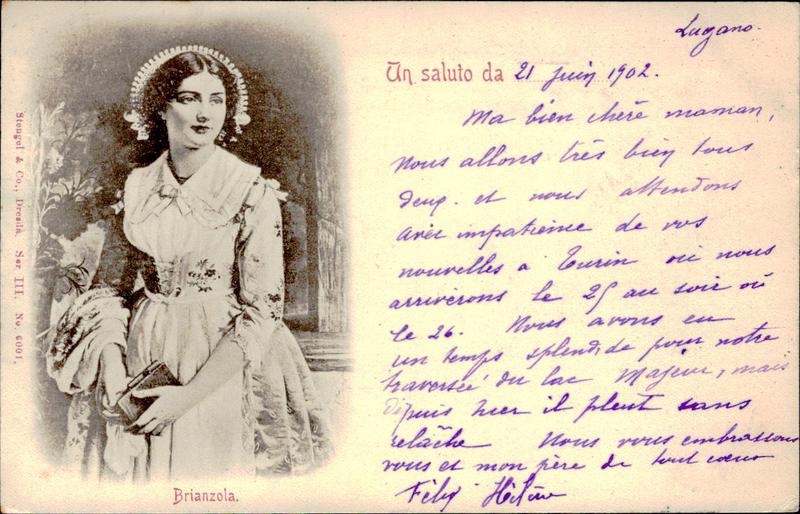 Lugano.
Un saluto da 21 juin 1902.
Ma bien chère maman,
nous allons très bien tous
deux. et nous attendons
avec impatience de vos
nouvelles à Turin où nous
arriverons le 25 au soir où
le 26. Nous avons eu
un temps splendide pour notre
traversée du lac Majeur, mais
depuis hier il pleut sans
relâche Nous vous embrassons
vous et mon père de tout cœur
Félix Hélène
Brianzola.
Stengel & Co., Dresda. Ser III. No. 6001.